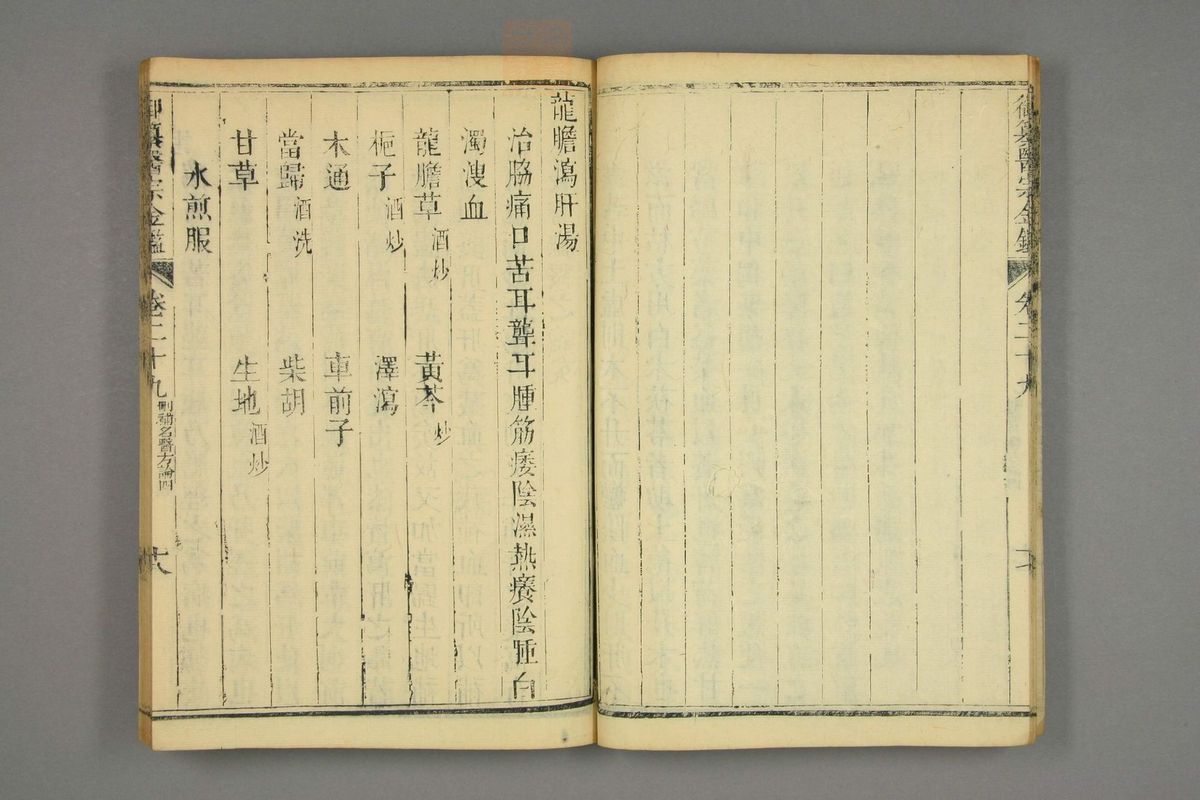 御纂醫宗金鑑 卷二十九
龍膽瀉肝湯
治脇痛口苦耳聾耳腫筋痿陰濕熱癢陰腫白
濁溲血
龍膽草酒炒 黃芩炒
梔子酒炒 澤瀉
木通 車前子
當歸酒洗 柴胡
甘草 生地酒炒
水煎服
御纂醫宗金鑑 卷二十九 刪補名醫方論四 十八